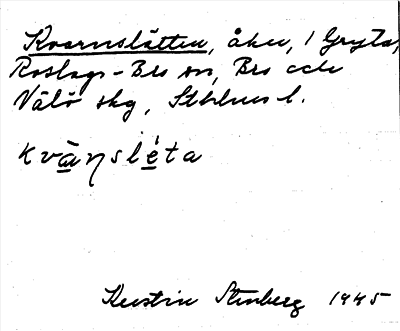 Kvarnslätten, åker, 1 Gryta,
Roslags-Bro sn, Bro och
Vätö skg, Sthlms l.
kvànsléta
Kerstin Stenberg 1945